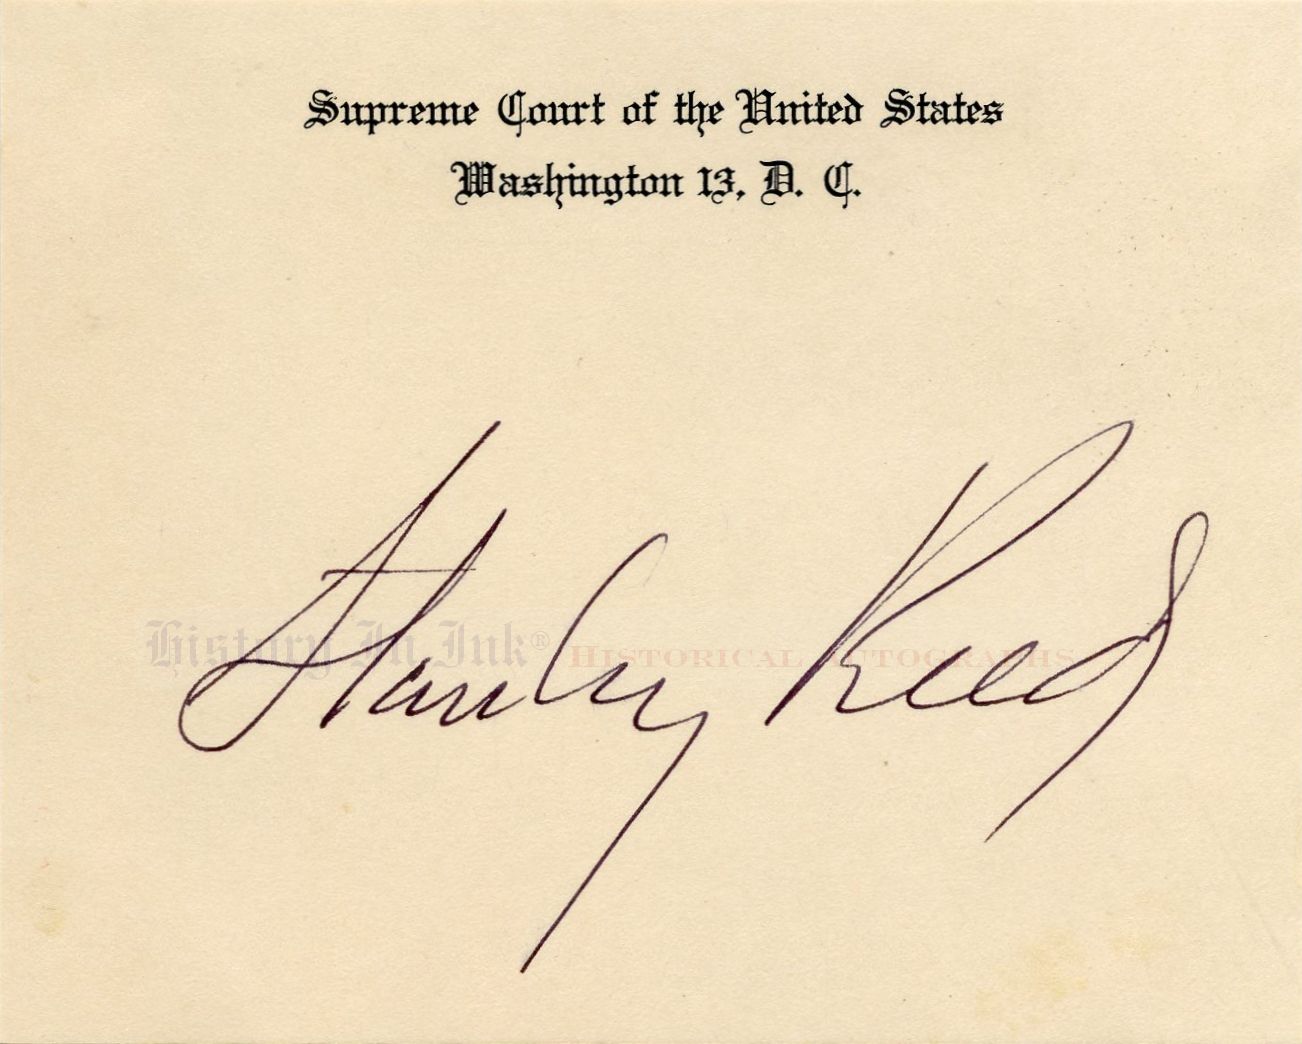 Supreme Court of the United States
Washington 13, D. C.
Stanley Reed
History In Ink® Historical Autographs